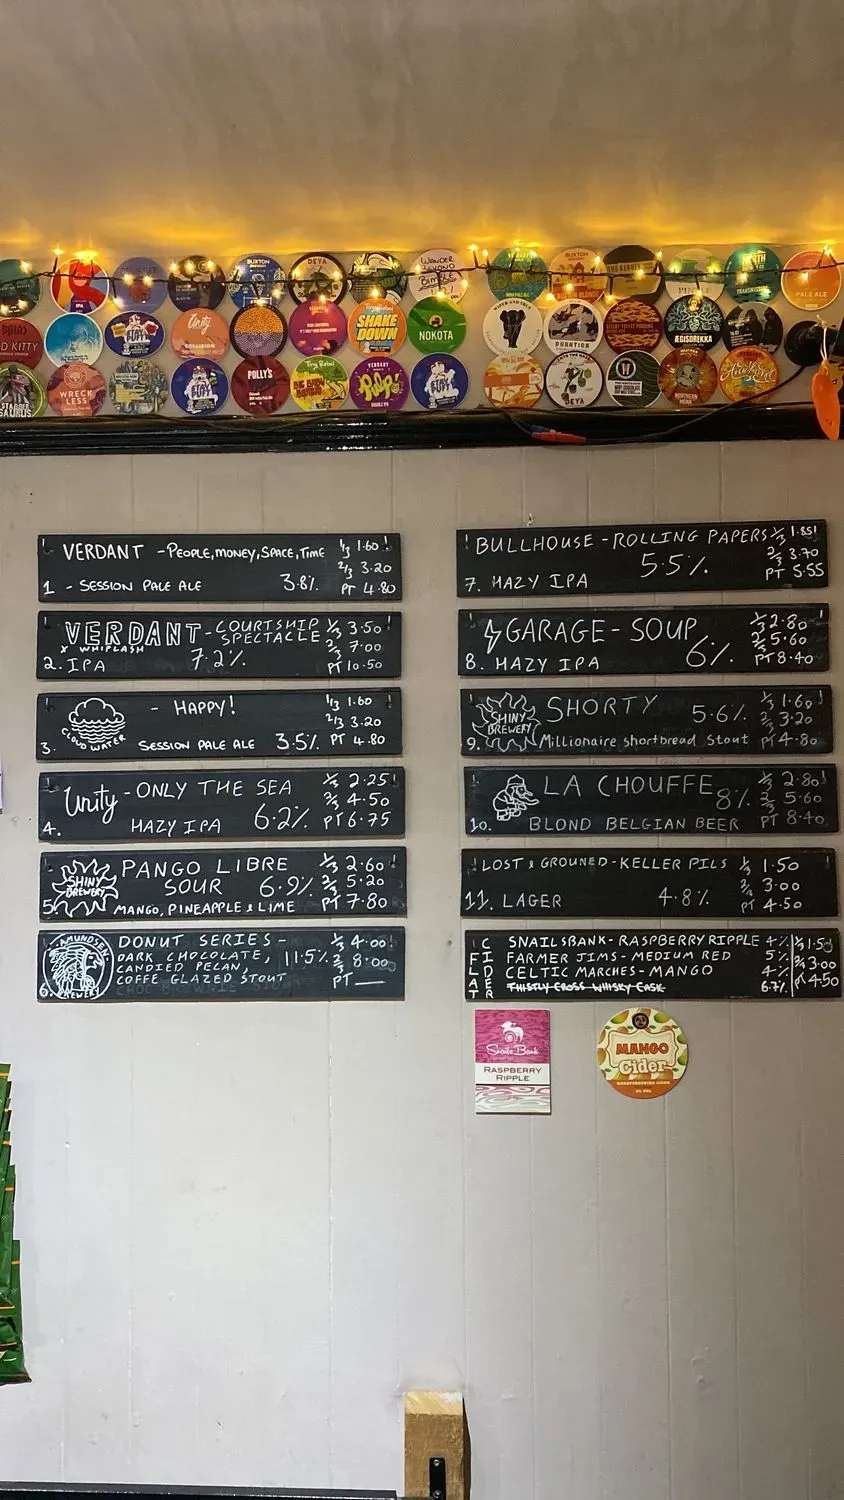 BUXTON
DEYA
WANDER
BEYOND
BUXTON
THE KERNEL
PALE ALE
KITTY
Unity
COLLISION
Tiny Rebel
SHAKE
DOWN
NOKOTA
DURATION
ÆGISDREKKA
WRECK
LESS
POLLY'S
Tiny Rebel
VERDANT
DEYA
NORTHERN
MONK
VERDANT -PEOPLE,MONEY,SPACE,TIME
1/3 1.60
2/3 3.20
1 - SESSION PALE ALE 3.8% PT 4.80
VERDANT-COURTSHIP
SPECTACLE
X WHIPLASH
1/3 3.50
2/3 7.00
2. IPA 7.2% PT 10.50
- HAPPY!
1/3 1.60
2/3 3.20
CLOUDWATER
3. SESSION PALE ALE 3.5% PT 4.80
Unity -ONLY THE SEA
1/3 2.25
2/3 4.50
4. HAZY IPA 6.2% PT 6.75
SHINY
BREWERY
PANGO LIBRE
SOUR 6.9%
1/3 2.60
2/3 5.20
5. MANGO, PINEAPPLE & LIME PT 7.80
AMUNDSEN
BREWERY
DONUT SERIES-
DARK CHOCOLATE, 11.5%
CANDIED PECAN,
COFFE GLAZED STOUT
1/3 4.00
2/3 8.00
6. PT
BULLHOUSE-ROLLING PAPERS 1/3 1.85
5.5% 2/3 3.70
7. HAZY IPA PT 5.55
GARAGE-SOUP 1/3 2.80
6% 2/3 5.60
8. HAZY IPA PT 8.40
SHINY
BREWERY
SHORTY 5.6%
1/3 1.60
2/3 3.20
9. Millionaire shortbread Stout PT 4.80
LA CHOUFFE 8%
1/3 2.80
2/3 5.60
10. BLOND BELGIAN BEER PT 8.40
LOST & GROUNED-KELLER PILS 1/3 1.50
2/3 3.00
11. LAGER 4.8% PT 4.50
FLAT
CIDER
SNAILSBANK-RASPBERRY RIPPLE 4% 1/3 1.50
FARMER JIMS-MEDIUM RED 5% 2/3 3.00
CELTIC MARCHES-MANGO 4% PT 4.50
THISTLY CROSS WHISKY CASK 6.7%
Snails Bank
RASPBERRY
RIPPLE
MANGO
Cider